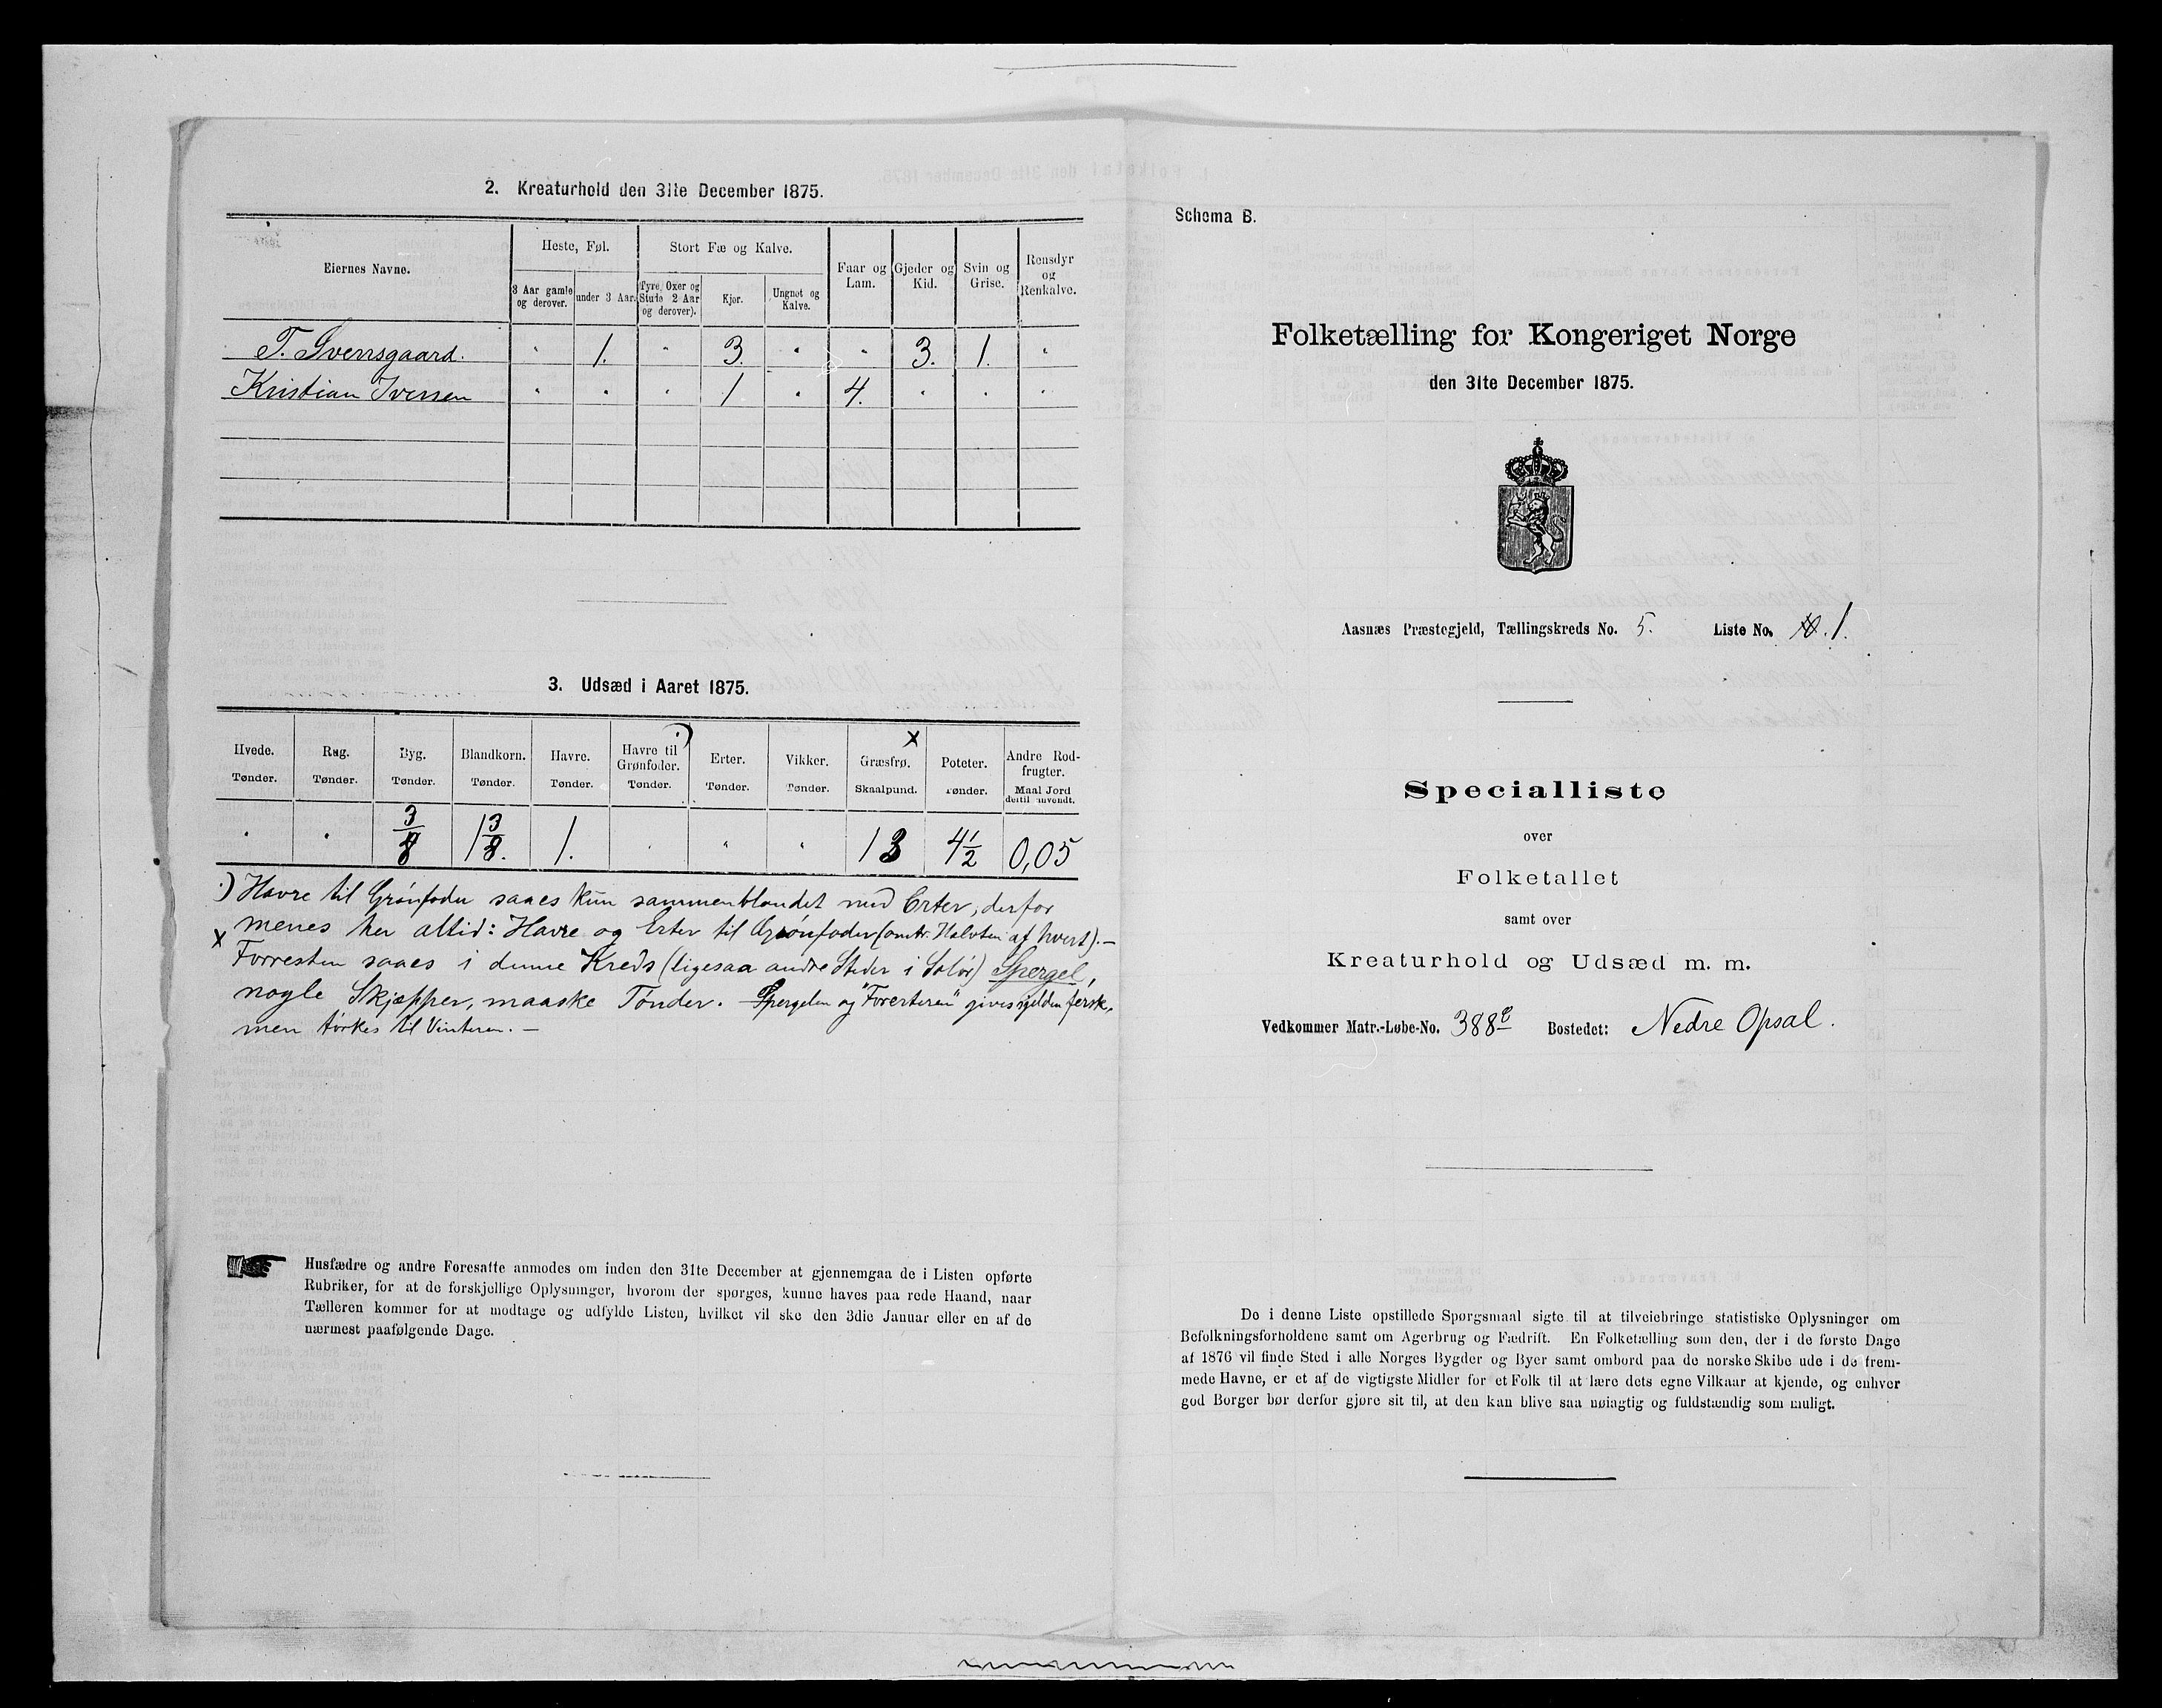 2. Kreaturhold den 31te December 1875.
Eiernes Navne.
Heste, Føl.
Stort Fæ og Kalve.
Faar og Lam.
Gjeder og Kid.
Svin og Grise.
Rensdyr og Renkalve.
3 Aar gamle og derover.
under 3 Aar.
Tyre, Oxer og Stude 2 Aar og derover).
Kjør.
Ungnøt og Kalve.
T. Svensgaard. " 1. " 3. " " 3. 1. "
Kristian Iversen " " " 1 " 4. " " "
3. Udsæd i Aaret 1875.
Hvede. Rug. Byg. Blandkorn. Havre. Havre til Grønfoder. ·) Erter. Vikker. Græsfrø. x Poteter. Andre Rodfrugter.
Tønder. Tønder. Tønder. Tønder. Tønder. Tønder. Tønder. Tønder. Skaalpund. Tønder. Maal Jord dertil anvendt.
" " 3/8 1 3/8. 1. " " " 13 4 1/2 0,05
·) Havre til Grønfoder saaes kun sammenblandet med Erter, derfor
menes her altid: Havre og Erter til Grønfoder (omtr. Halvten af hvert). —
x Forresten saaes i denne Kreds (ligesaa andre Steder i Solør) Spergel,
nogle Skjæpper, maaske Tønder. — Spergelen og "Forerteren" gives sjelden fersk,
men tørkes til Vinteren. —
Husfædre og andre Foresatte anmodes om inden den 31te December at gjennemgaa de i Listen opførte
Rubriker, for at de forskjellige Oplysninger, hvorom der spørges, kunne haves paa rede Haand, naar
Tælleren kommer for at modtage og udfylde Listen, hvilket vil ske den 3die Januar eller en af de
nærmest paafølgende Dage.
Schema B.
Folketælling for Kongeriget Norge
den 31te December 1875.
Aasnæs Præstegjeld, Tællingskreds No. 5. Liste No. 1.
Specialliste
over
Folketallet
samt over
Kreaturhold og Udsæd m. m.
Vedkommer Matr.-Løbe-No. 388e Bostedet: Nedre Opsal.
De i denne Liste opstillede Spørgsmaal sigte til at tilveiebringe statistiske Oplysninger om
Befolkningsforholdene samt om Agerbrug og Fædrift. En Folketælling som den, der i de første Dage
af 1876 vil finde Sted i alle Norges Bygder og Byer samt ombord paa de norske Skibe ude i de frem-
mede Havne, er et af de vigtigste Midler for et Folk til at lære dets egne Vilkaar at kjende, og enhver
god Borger bør derfor gjøre sit til, at den kan blive saa nøiagtig og fuldstændig som muligt.